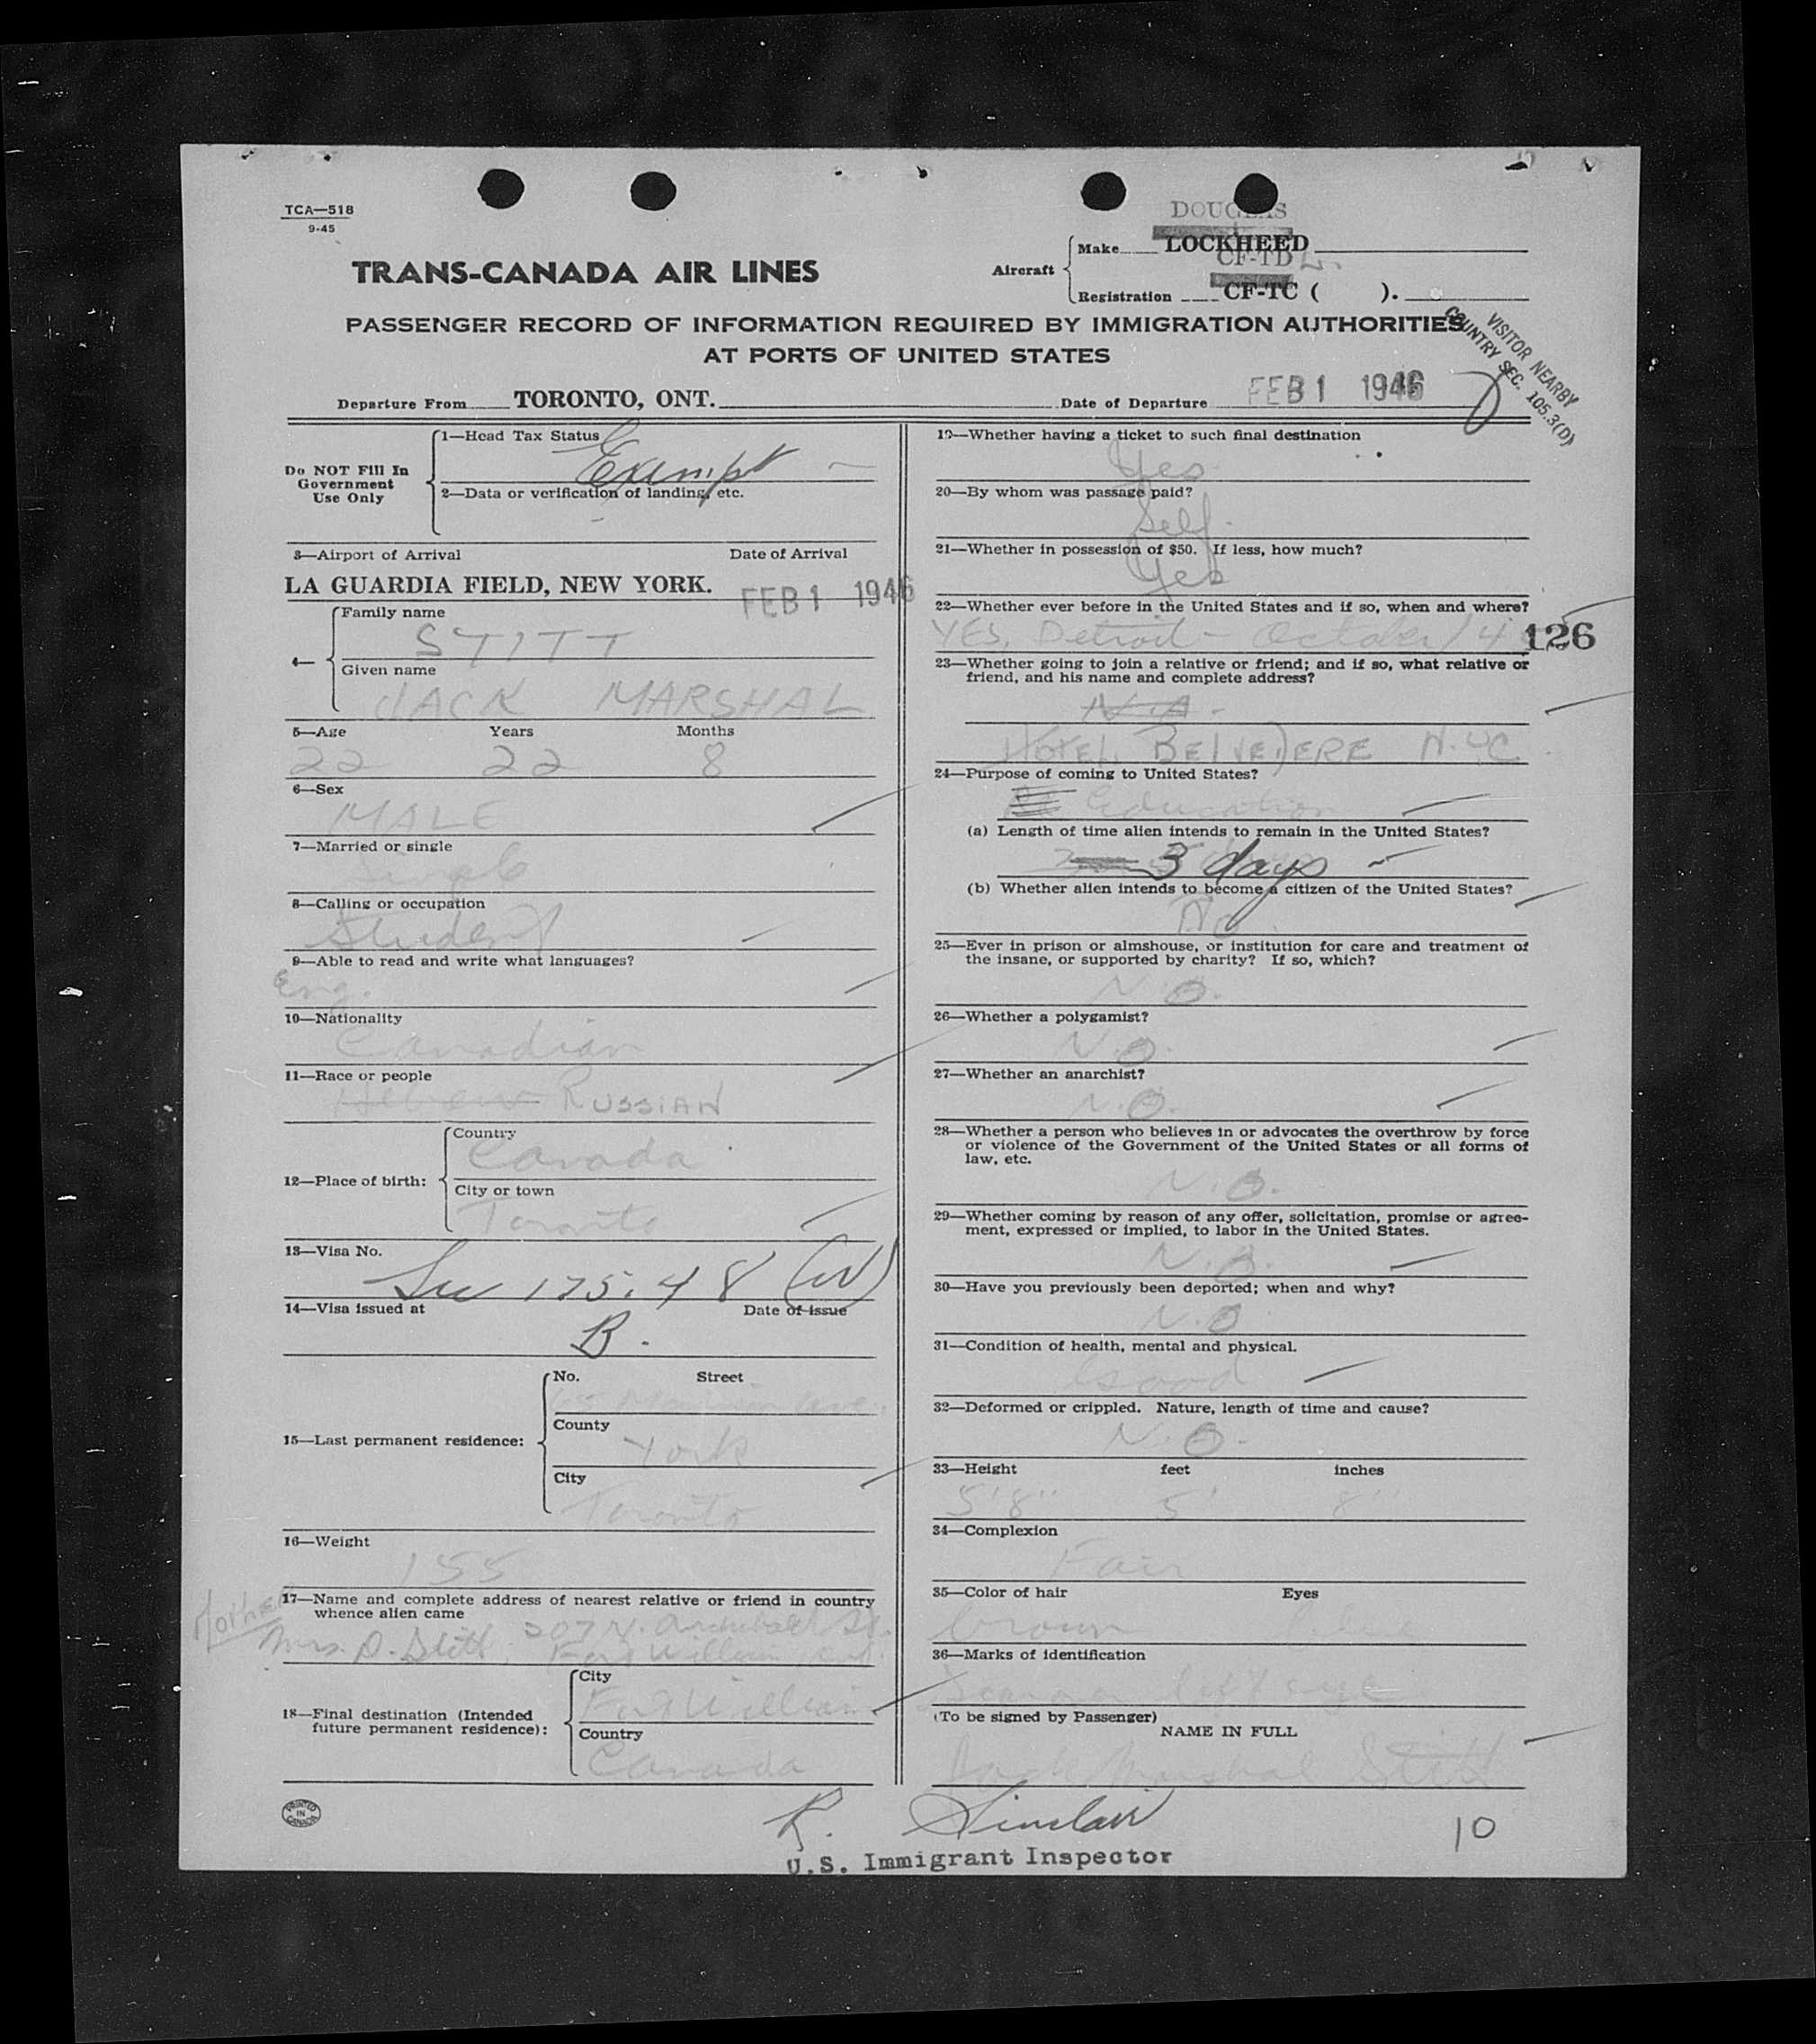 TCA—518
9-45
DOUGLAS
Aircraft
Make LOCKHEED
CF-TD L.
Registration CF-TC ( ).
TRANS-CANADA AIR LINES
PASSENGER RECORD OF INFORMATION REQUIRED BY IMMIGRATION AUTHORITIES
AT PORTS OF UNITED STATES
VISITOR NEARBY
COUNTRY SEC. 105.3(D)
Departure From TORONTO, ONT. Date of Departure FEB 1 1946
Do NOT Fill In
Government
Use Only
1—Head Tax Status
Exempt
2—Data or verification of landing, etc.
3—Airport of Arrival Date of Arrival
LA GUARDIA FIELD, NEW YORK. FEB 1 1946
4—
Family name
STITT
Given name
JACK MARSHAL
5—Age Years Months
22 22 8
6—Sex
MALE
7—Married or single
Single
8—Calling or occupation
Student
9—Able to read and write what languages?
Eng.
10—Nationality
Canadian
11—Race or people
Hebrew RUSSIAN
12—Place of birth:
Country
Canada
City or town
Toronto
13—Visa No.
Sec 175.48 (W)
14—Visa issued at Date of issue
B.
15—Last permanent residence:
No. Street
Ave.
County
York
City
Toronto
16—Weight
155
17—Name and complete address of nearest relative or friend in country
whence alien came
Mother
Mrs. D. Stitt, 207 N. Archibald St.
Fort William, Ont.
18—Final destination (Intended
future permanent residence):
City
Fort William
Country
Canada
19—Whether having a ticket to such final destination
Yes
20—By whom was passage paid?
Self
21—Whether in possession of $50. If less, how much?
Yes
22—Whether ever before in the United States and if so, when and where?
YES, Detroit - October /45
126
23—Whether going to join a relative or friend; and if so, what relative or
friend, and his name and complete address?
N.A.
HOTEL BELVEDERE N.Y.C.
24—Purpose of coming to United States?
Education
(a) Length of time alien intends to remain in the United States?
3 days
(b) Whether alien intends to become a citizen of the United States?
No
25—Ever in prison or almshouse, or institution for care and treatment of
the insane, or supported by charity? If so, which?
N.O.
26—Whether a polygamist?
N.O.
27—Whether an anarchist?
N.O.
28—Whether a person who believes in or advocates the overthrow by force
or violence of the Government of the United States or all forms of
law, etc.
N.O.
29—Whether coming by reason of any offer, solicitation, promise or agree-
ment, expressed or implied, to labor in the United States.
N.O.
30—Have you previously been deported; when and why?
N.O
31—Condition of health, mental and physical.
Good
32—Deformed or crippled. Nature, length of time and cause?
N.O.
33—Height feet inches
5'8" 5' 8"
34—Complexion
Fair
35—Color of hair Eyes
brown blue
36—Marks of identification
Scar on left eye
(To be signed by Passenger)
NAME IN FULL
Jack Marshal Stitt
PRINTED
IN
CANADA
R. Sinclair
U.S. Immigrant Inspector
10